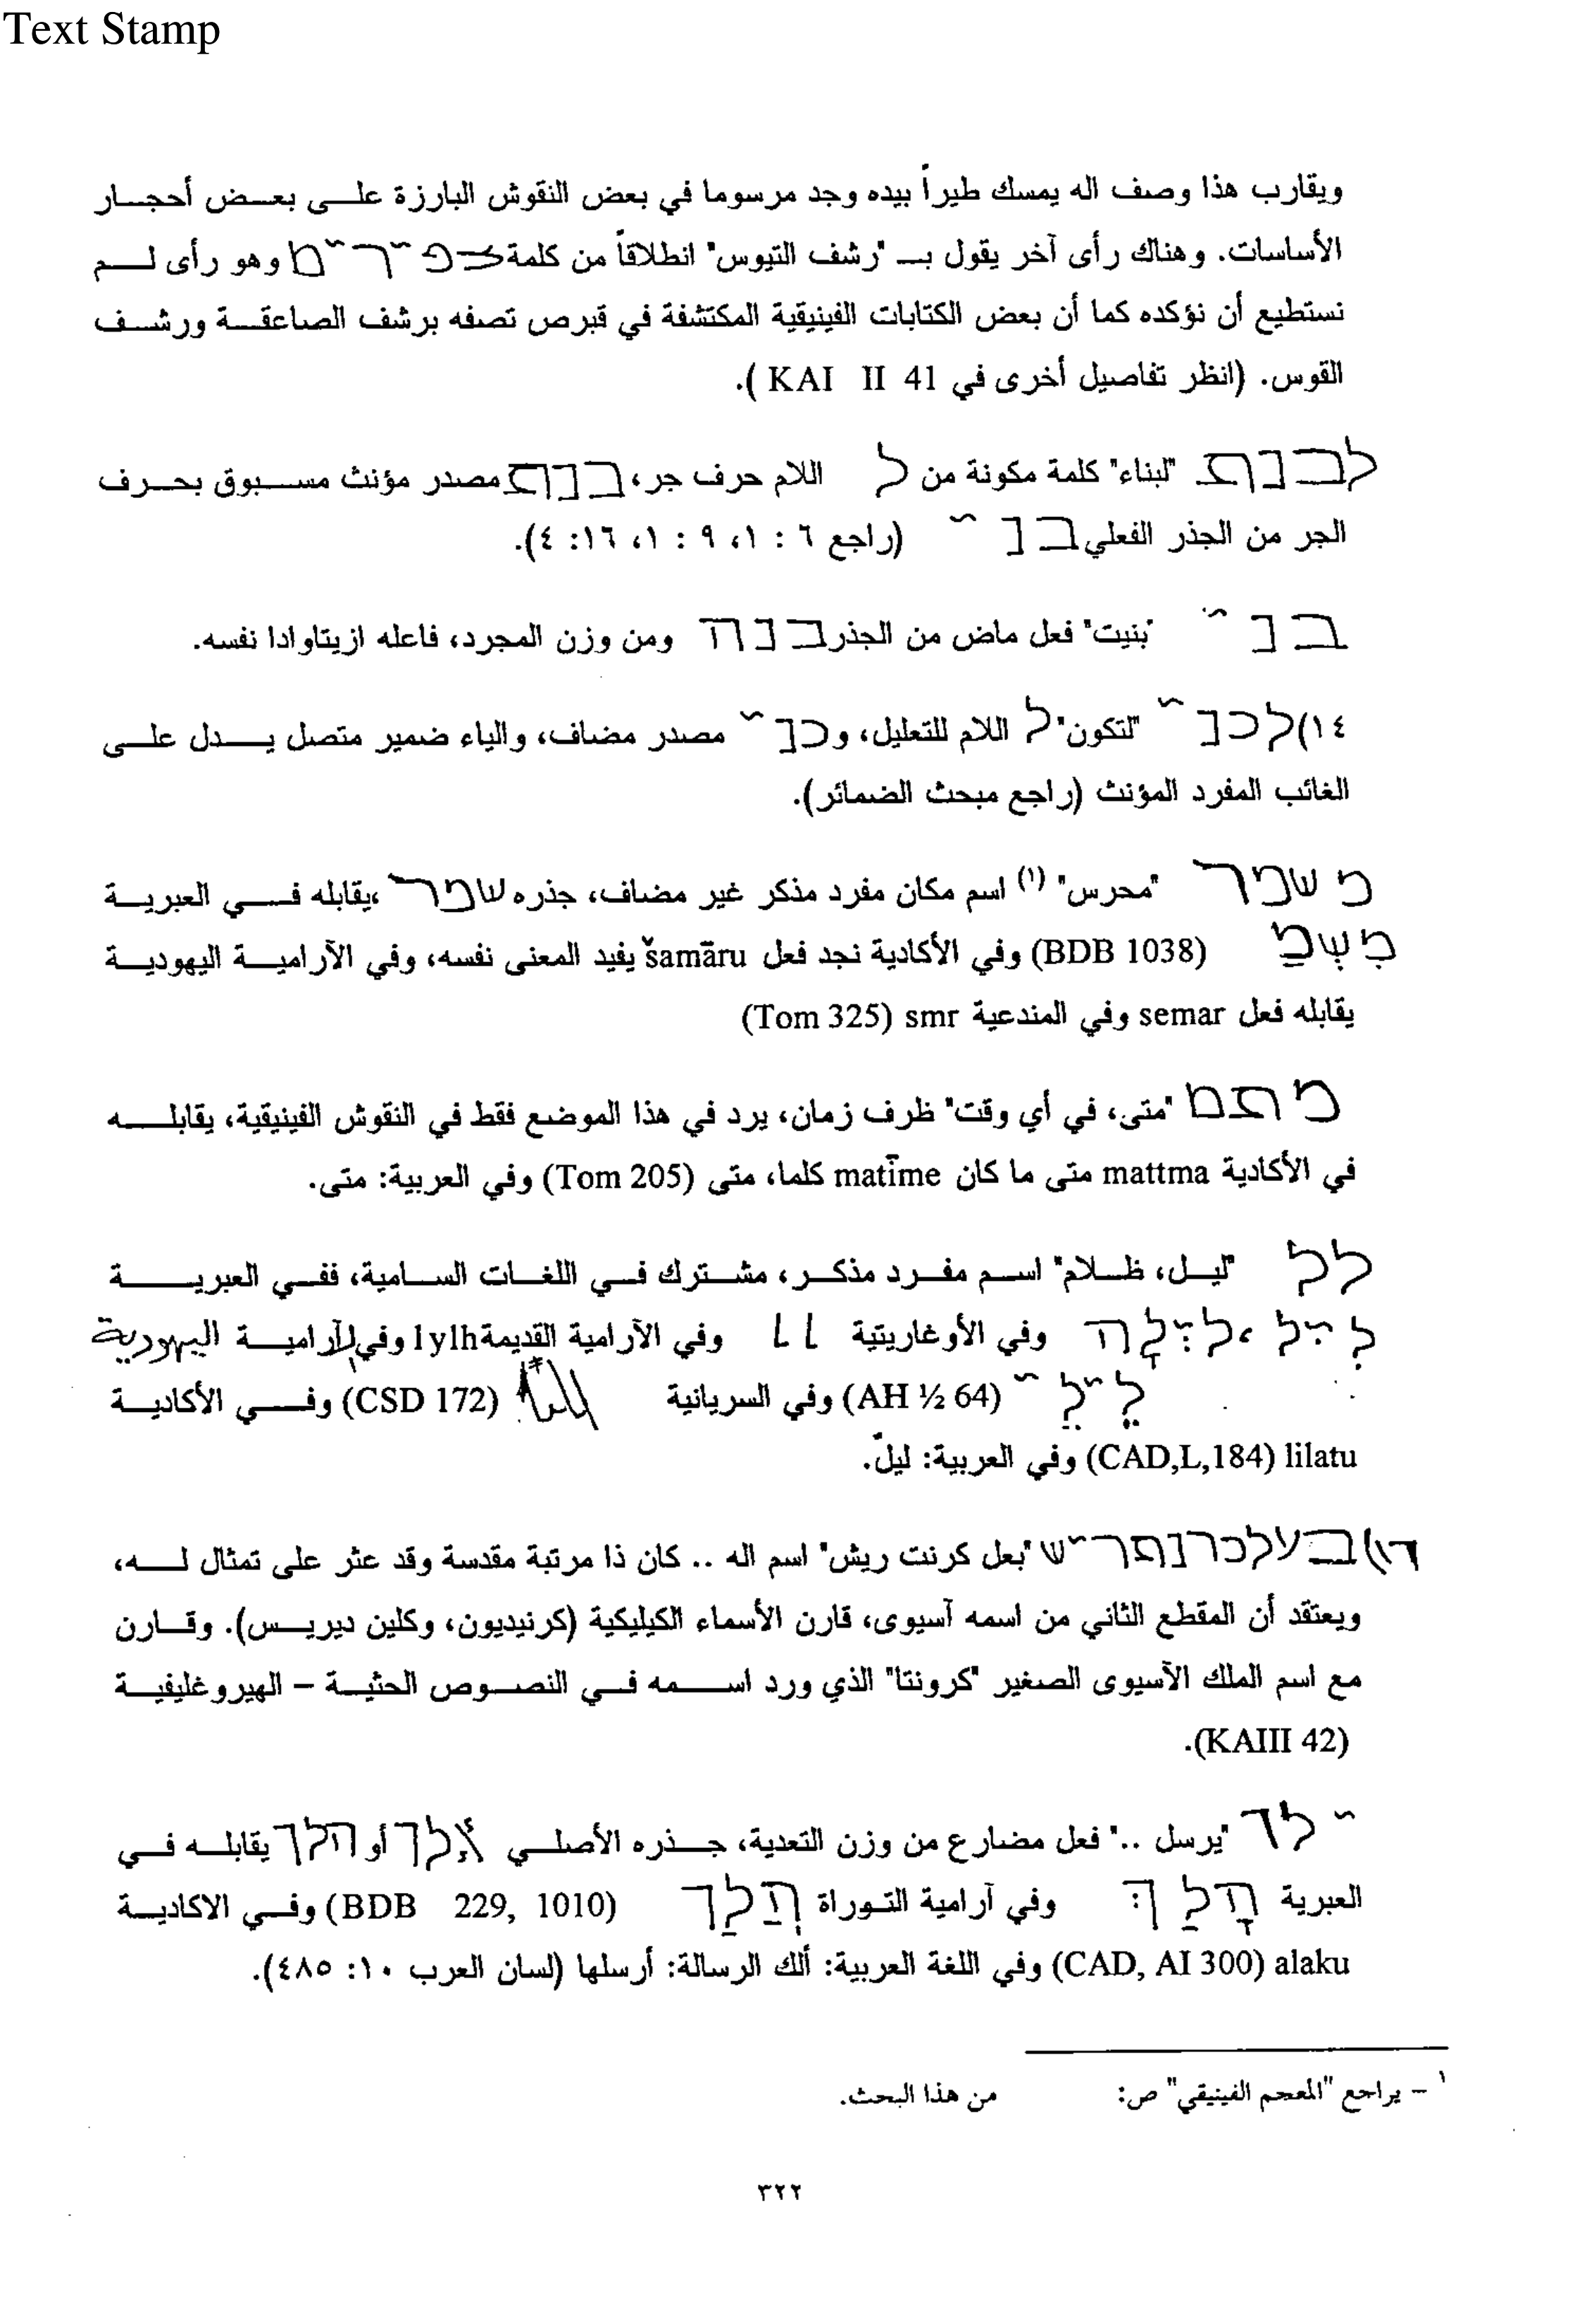 Text Stamp
ويقارب هذا وصف اله يمسك طيراً بيده وجد مرسوما في بعض النقوش البارزة على بعض أحجار
الأساسات. وهناك رأى آخر يقول بـ "رشف التيوس" انطلاقاً من كلمة צפרים وهو رأى لم
نستطيع أن نؤكده كما أن بعض الكتابات الفينيقية المكتشفة في قبرص تصفه برشف الصاعقة ورشف
القوس. (انظر تفاصيل أخرى في KAI II 41 ).
לבנת "لبناء" كلمة مكونة من ל اللام حرف جر، בנת مصدر مؤنث مسبوق بحرف
الجر من الجذر الفعلي בני (راجع ٦ : ١، ٩ : ١، ١٦: ٤).
בני "بنيت" فعل ماض من الجذر בנה ومن وزن المجرد، فاعله ازيتاوادا نفسه.
١٤) לכני "لتكون" ל اللام للتعليل، و כני مصدر مضاف، والياء ضمير متصل يدل على
الغائب المفرد المؤنث (راجع مبحث الضمائر).
משמר "محرس" (١) اسم مكان مفرد مذكر غير مضاف، جذره שמר ،يقابله في العبرية
(BDB 1038) وفي الأكادية نجد فعل šamāru يفيد المعنى نفسه، وفي الآرامية اليهودية
يقابله فعل semar وفي المندعية smr (Tom 325)
מתם "متى، في أي وقت" ظرف زمان، يرد في هذا الموضع فقط في النقوش الفينيقية، يقابله
في الأكادية mattma متى ما كان matīme كلما، متى (Tom 205) وفي العربية: متى.
לל "ليل، ظلام" اسم مفرد مذكر، مشترك في اللغات السامية، ففي العبرية
ליל ، לילה وفي الأوغاريتية LL وفي الآرامية القديمة lylh وفي الآرامية اليهودية
ליליי (AH ½ 64) وفي السريانية (CSD 172) وفي الأكادية
lilatu (CAD,L,184) وفي العربية: ليلٌ.
١٥) בעלכרנתריש "بعل كرنت ريش" اسم اله .. كان ذا مرتبة مقدسة وقد عثر على تمثال له،
ويعتقد أن المقطع الثاني من اسمه آسيوى، قارن الأسماء الكيليكية (كرنيديون، وكلين ديريس). وقارن
مع اسم الملك الآسيوى الصغير "كرونتا" الذي ورد اسمه في النصوص الحثية – الهيروغليفية
(KAIII 42).
ילך "يرسل .." فعل مضارع من وزن التعدية، جذره الأصلي אלך أو הלך يقابله في
العبرية הָלַךְ وفي آرامية التوراة הֲלַך (BDB 229, 1010) وفي الاكادية
alaku (CAD, AI 300) وفي اللغة العربية: ألك الرسالة: أرسلها (لسان العرب ١٠: ٤٨٥).
١ – يراجع "المعجم الفينيقي" ص: من هذا البحث.
٣٢٢